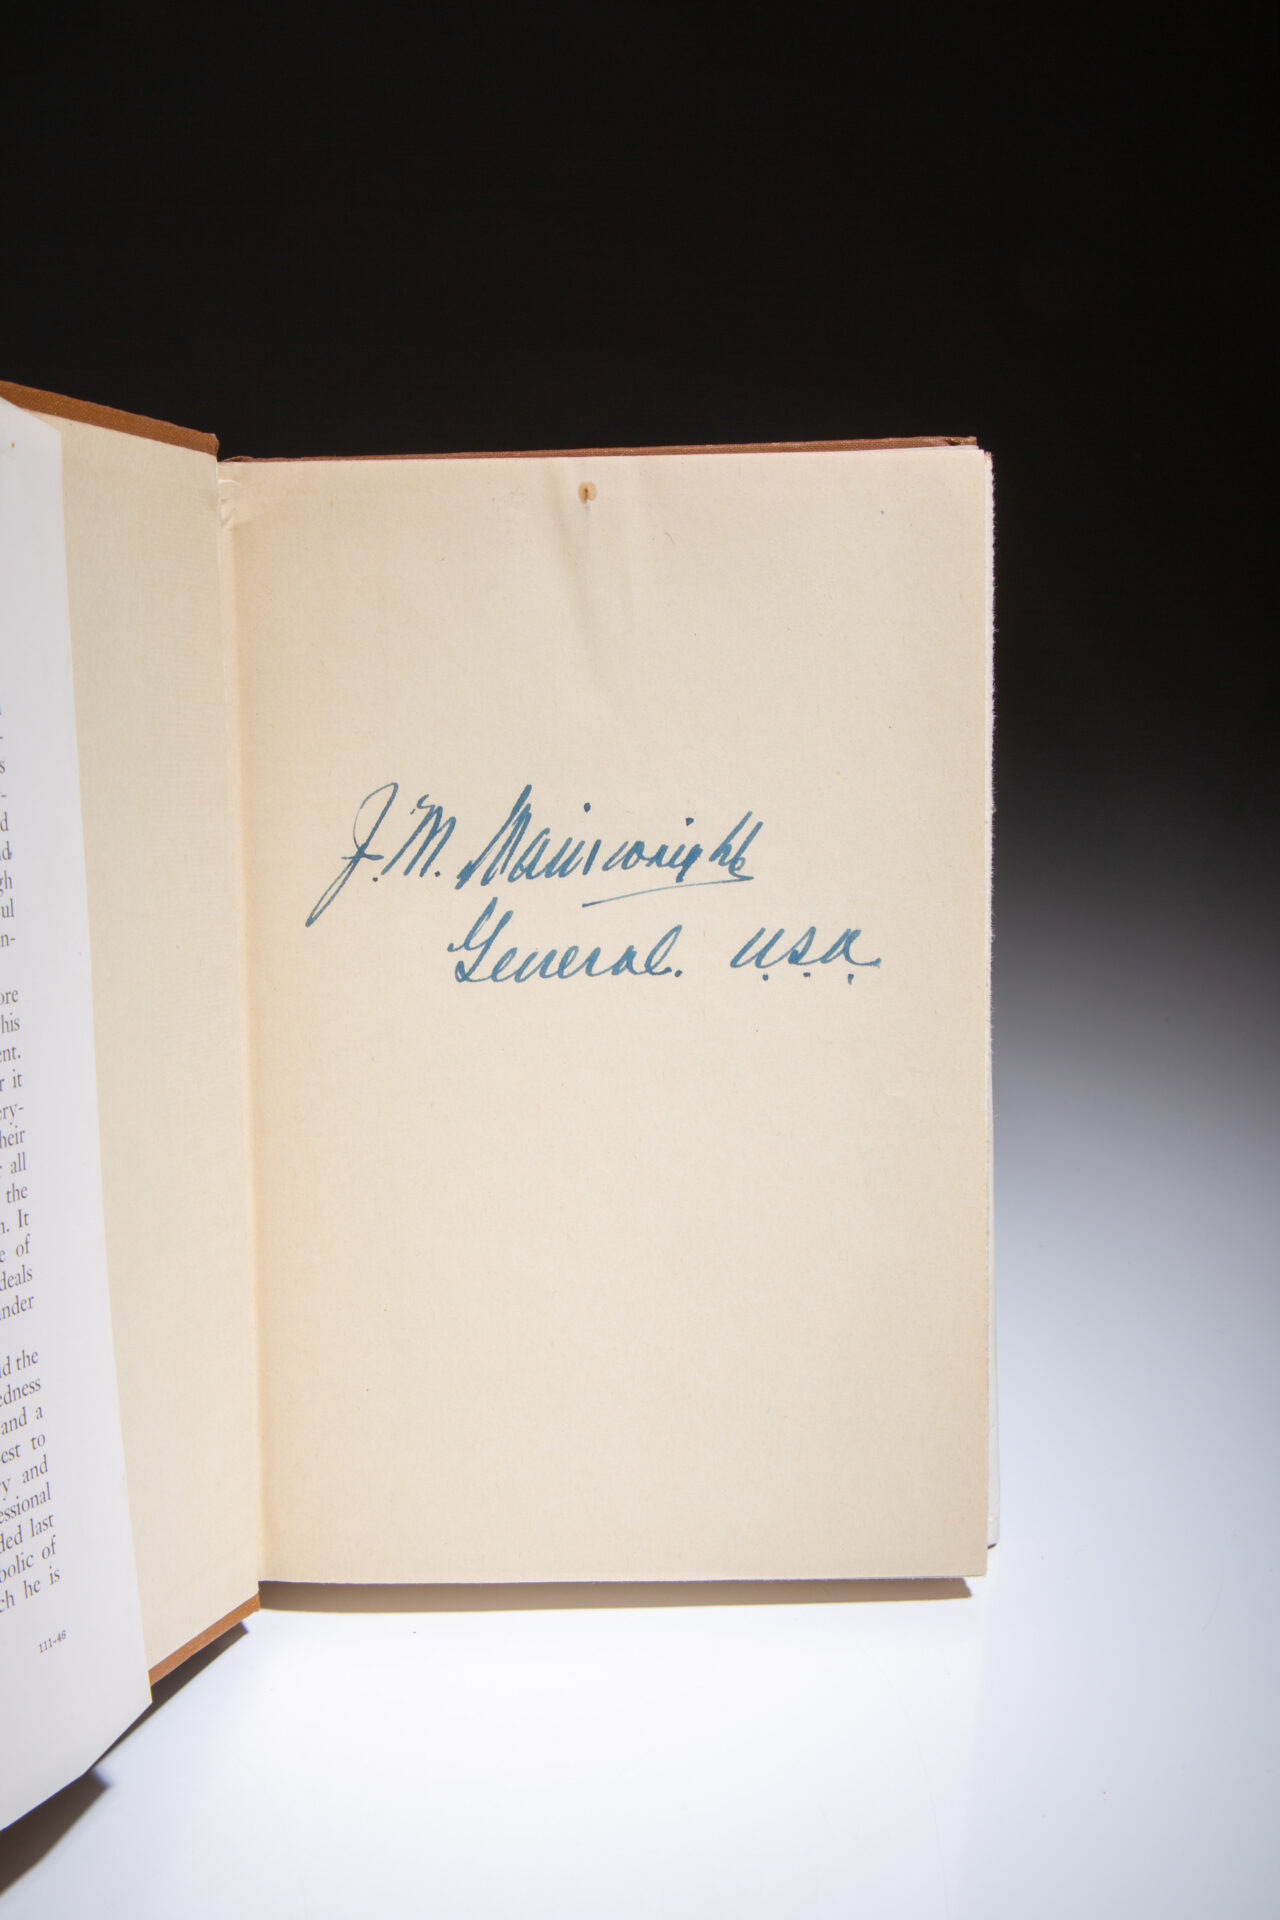 -
s
-
d
d,
gh
ul
n-
ore
his
ent.
r it
ery-
heir
r all
the
n. It
e of
deals
nder
d the
edness
and a
est to
ry and
essional
ded last
bolic of
ch he is
111-46
J. M. Wainwright
General. U.S.A.